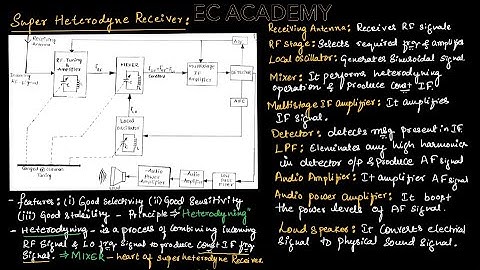 Super Heterodyne Receiver:
EC ACADEMY
Receiving Antenna
Incoming RF signal
RF Tuning & Amplifier
MIXER
Multistage IF Amplifier
DETECTOR
AGC
Local Oscillator
Audio Power Amplifier
Audio Amplifier
Low Pass Filter
Ganged or common Tuning
- features: (i) Good selectivity (ii) Good Sensitivity
(iii) Good stability - Principle ⇒ Heterodyning
- Heterodyning - is a process of combining incoming
RF signal & LO frq signal to produce const IF frq
signal. ⇒ MIXER - heart of super heterodyne Receiver
Receiving Antenna: Receives RF signals
RF Stage: Selects required frq & amplifies
Local oscillator: Generates Sinusoidal signal
Mixer: It performs heterodyning
operation & produce const IF.
Multistage IF amplifier: It amplifies
IF signal.
Detector: detects msg present in IF
LPF: Eleminates any high harmonics
in detector o/p & produce AF signal
Audio Amplifier: It amplifier AF signal
Audio power Amplifier: It boost
the power levels of AF signal.
Loud Speaker: It converts electrical
signal to physical sound signal.